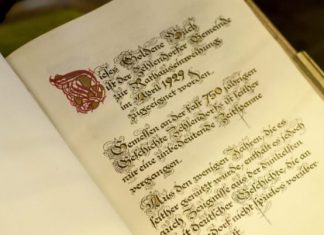 Dieses Goldene Buch
ist der Zehlendorfer Gemeinde
zur Rathauseinweihung
im April 1929
zugeeignet worden.
Gemessen an der fast 750 jährigen
Geschichte Zehlendorfs ist seither
nur eine unbedeutende Zeitspanne
vergangen.
Aus den wenigen Seiten, die es
seither genutzt wurde, enthält es jedoch
auch Zeugnisse aus der dunkelsten
deutscher Geschichte, die an
dorf nicht spurlos vorüber